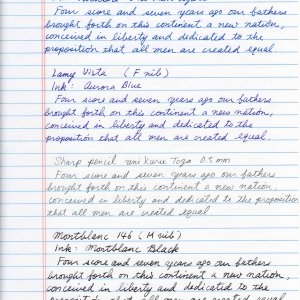 Four score and seven years ago our fathers
brought forth on this continent a new nation,
conceived in liberty and dedicated to the
proposition that all men are created equal.
Lamy Vista (F nib)
Ink: Aurora Blue
Four score and seven years ago our fathers
brought forth on this continent a new nation,
conceived in liberty and dedicated to the
proposition that all men are created equal
Sharp pencil uni kuru Toga 0.5 mm
Four score and seven years ago our fathers
brought forth on this continent a new nation,
conceived in liberty and dedicated to the proposition
that all men are created equal
Montblanc 146 (M nib)
Ink: Montblanc Black
Four score and seven years ago our fathers
brought forth on this continent a new nation,
conceived in liberty and dedicated to the
proposition that all men are created equal